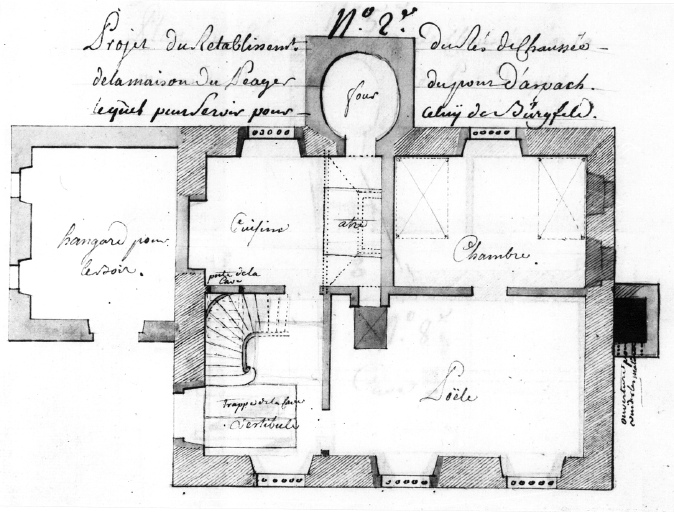 N.º 2.e
Projet du Retablissemt. du Rés de Chaussée
de la maison du Peager du pont d'aspach.
lequel peut servir pour celuÿ de Bürgfeld.
four
hangard pour
Cuisine
atre
Chambre.
porte de la
Cave
Poële
trappe de la Cave
Vestibule
ouverture pour